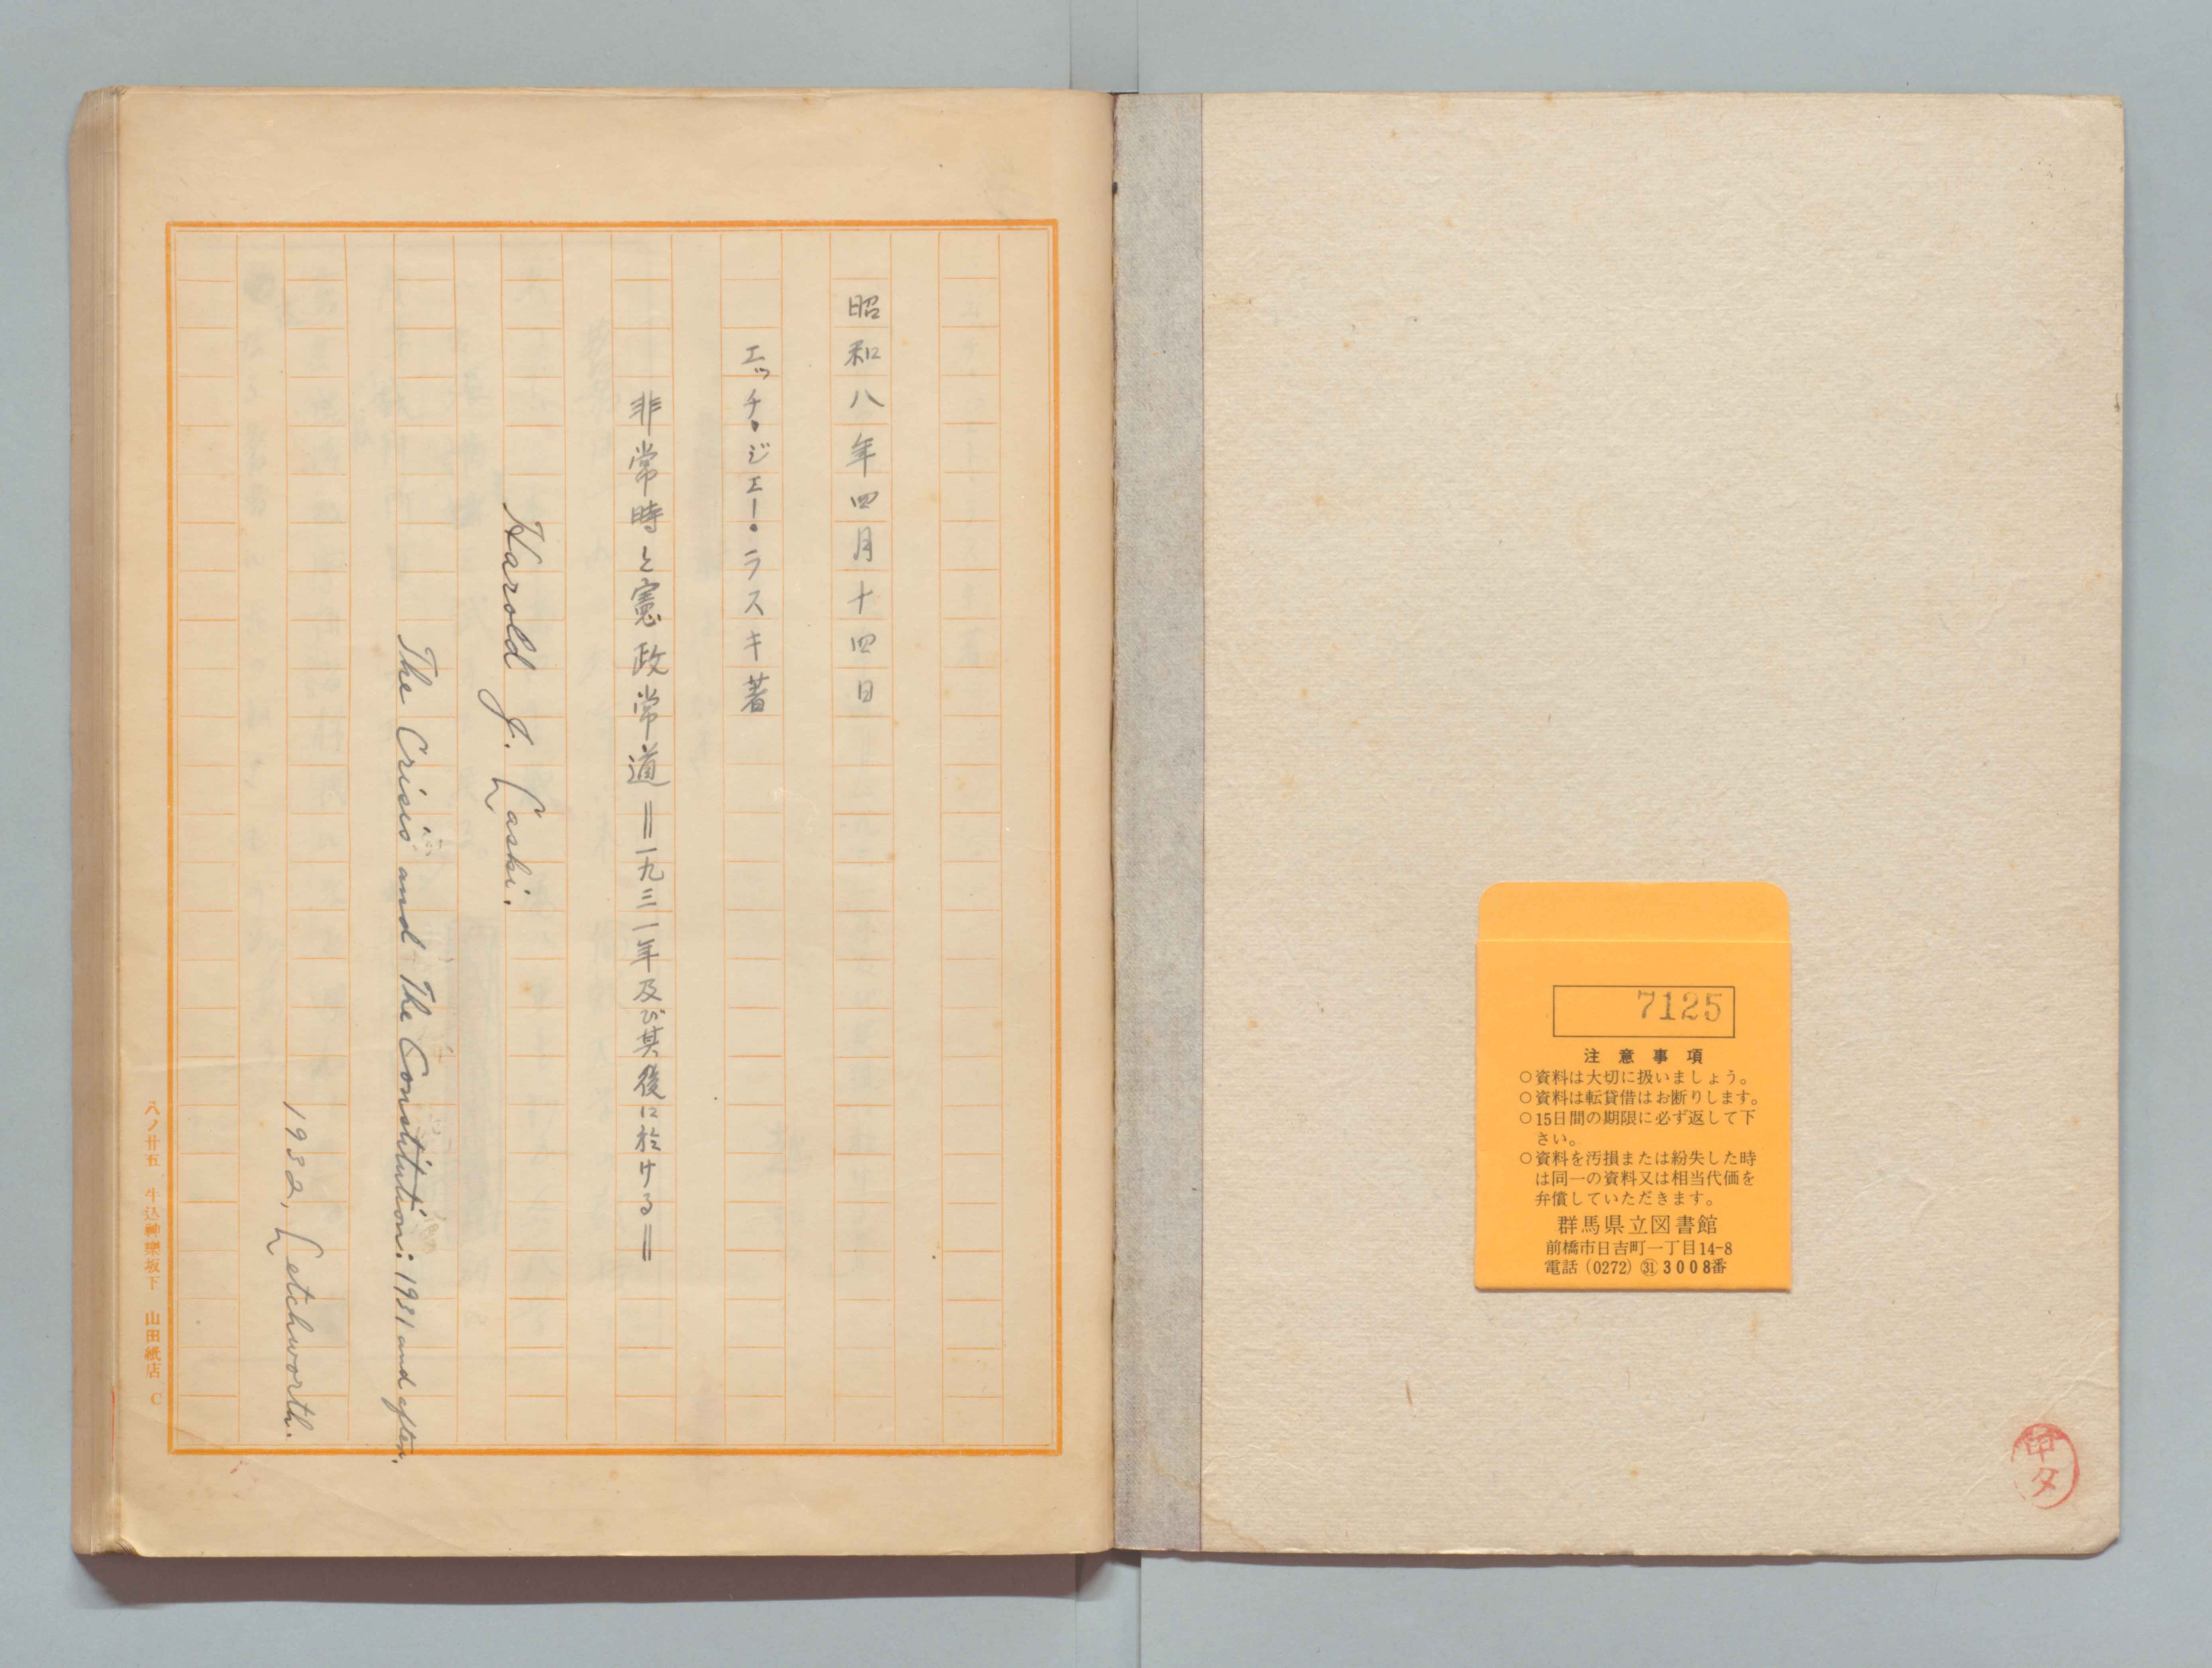 昭和八年四月十四日
エッチ・ジエー・ラスキ著
非常時と憲政常道=一九三一年及び其後に於ける=
Harold J. Laski.
The Crisis and The Constitution: 1931 and after.
1932, Letchworth.
八ノ廿五 牛込神樂坂下 山田紙店 C
7125
注意事項
○資料は大切に扱いましょう。
○資料は転貸借はお断りします。
○15日間の期限に必ず返して下
さい。
○資料を汚損または紛失した時
は同一の資料又は相当代価を
弁償していただきます。
群馬県立図書館
前橋市日吉町一丁目14-8
電話(0272)㉛3008番